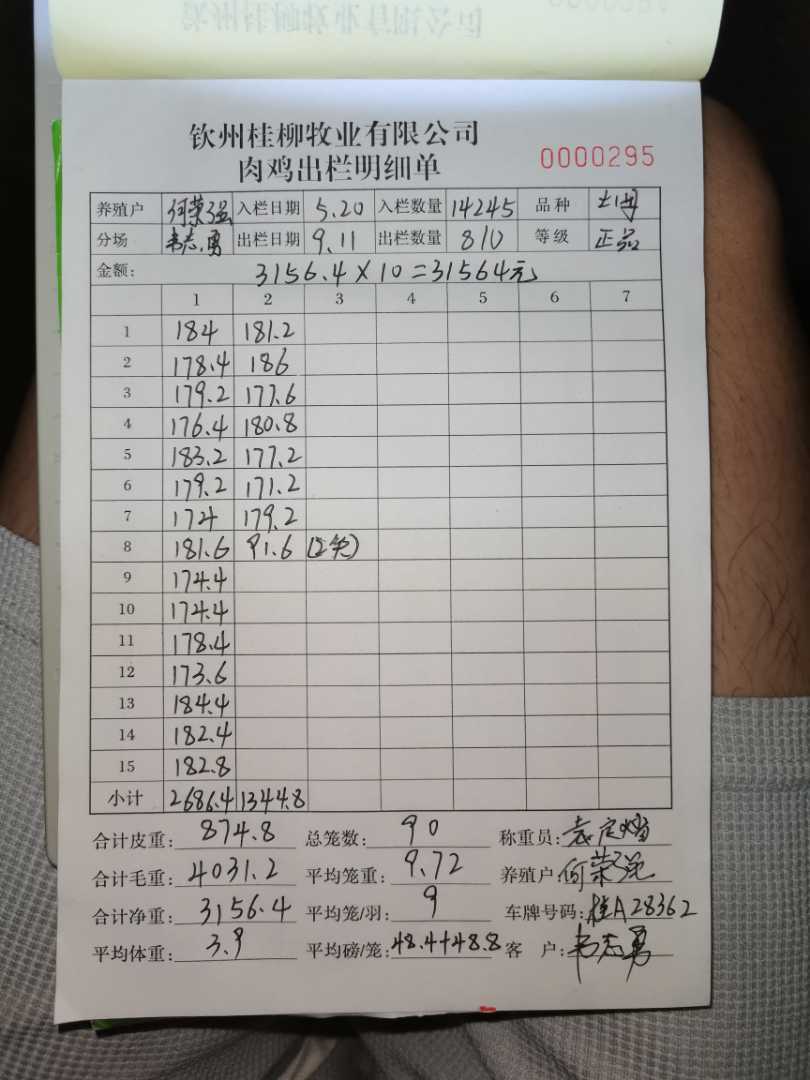 钦州桂柳牧业有限公司
肉鸡出栏明细单 0000295
养殖户 何荣强 入栏日期 5.20 入栏数量 14245 品种 土母
分场 韦志勇 出栏日期 9.11 出栏数量 810 等级 正品
金额: 3156.4×10=31564元
1 2 3 4 5 6 7
1 184 181.2
2 178.4 186
3 179.2 177.6
4 176.4 180.8
5 183.2 177.2
6 179.2 171.2
7 174 179.2
8 181.6 91.6
9 174.4
10 174.4
11 178.4
12 173.6
13 184.4
14 182.4
15 182.8
小计 2686.4 1344.8
合计皮重: 874.8 总笼数: 90 称重员:
合计毛重: 4031.2 平均笼重: 9.72 养殖户: 何荣强
合计净重: 3156.4 平均笼/羽: 9 车牌号码: 桂A28362
平均体重: 3.9 平均磅/笼: 48.4+48.8 客 户: 韦志勇